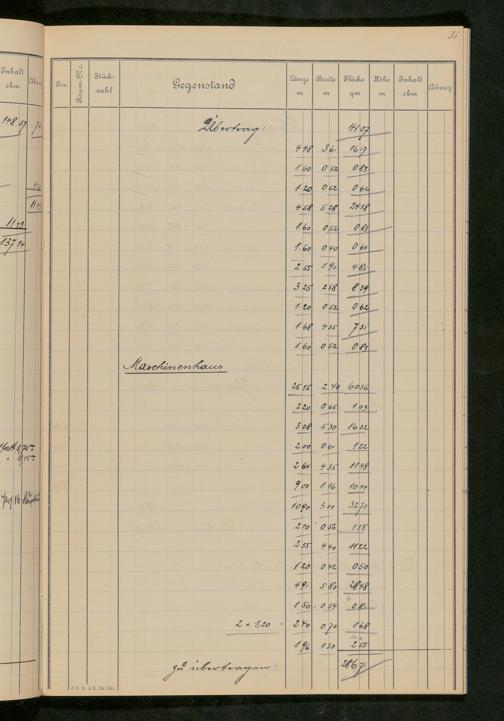 21
Pos.
Raum-No.
Stück-zahl
Gegenstand
Länge m
Breite m
Fläche qm
Höhe m
Inhalt cbm
Abzug
Übertrag: 41 07
4 48 3 61 16 17
1 60 0 52 0 83
1 20 0 52 0 62
4 58 5 28 24 18
1 60 0 52 0 83
1 60 0 40 0 64
2 55 1 90 4 85
3 25 2 58 8 39
1 20 0 52 0 62
1 68 4 35 7 31
1 60 0 52 0 83
Maschinenhaus
25 15 2 40 60 36
2 20 0 65 1 43
3 08 5 30 16 32
2 00 0 61 1 22
2 64 4 35 11 48
9 00 1 16 10 44
10 90 3 00 32 70
2 10 0 56 1 18
2 55 4 40 11 22
1 20 0 42 0 50
4 91 5 80 28 48
1 50 0 54 0 81
2 × 1,20 = 2 40 0 70 1 68
1 96 1 30 2 55
zu übertragen: 286 71